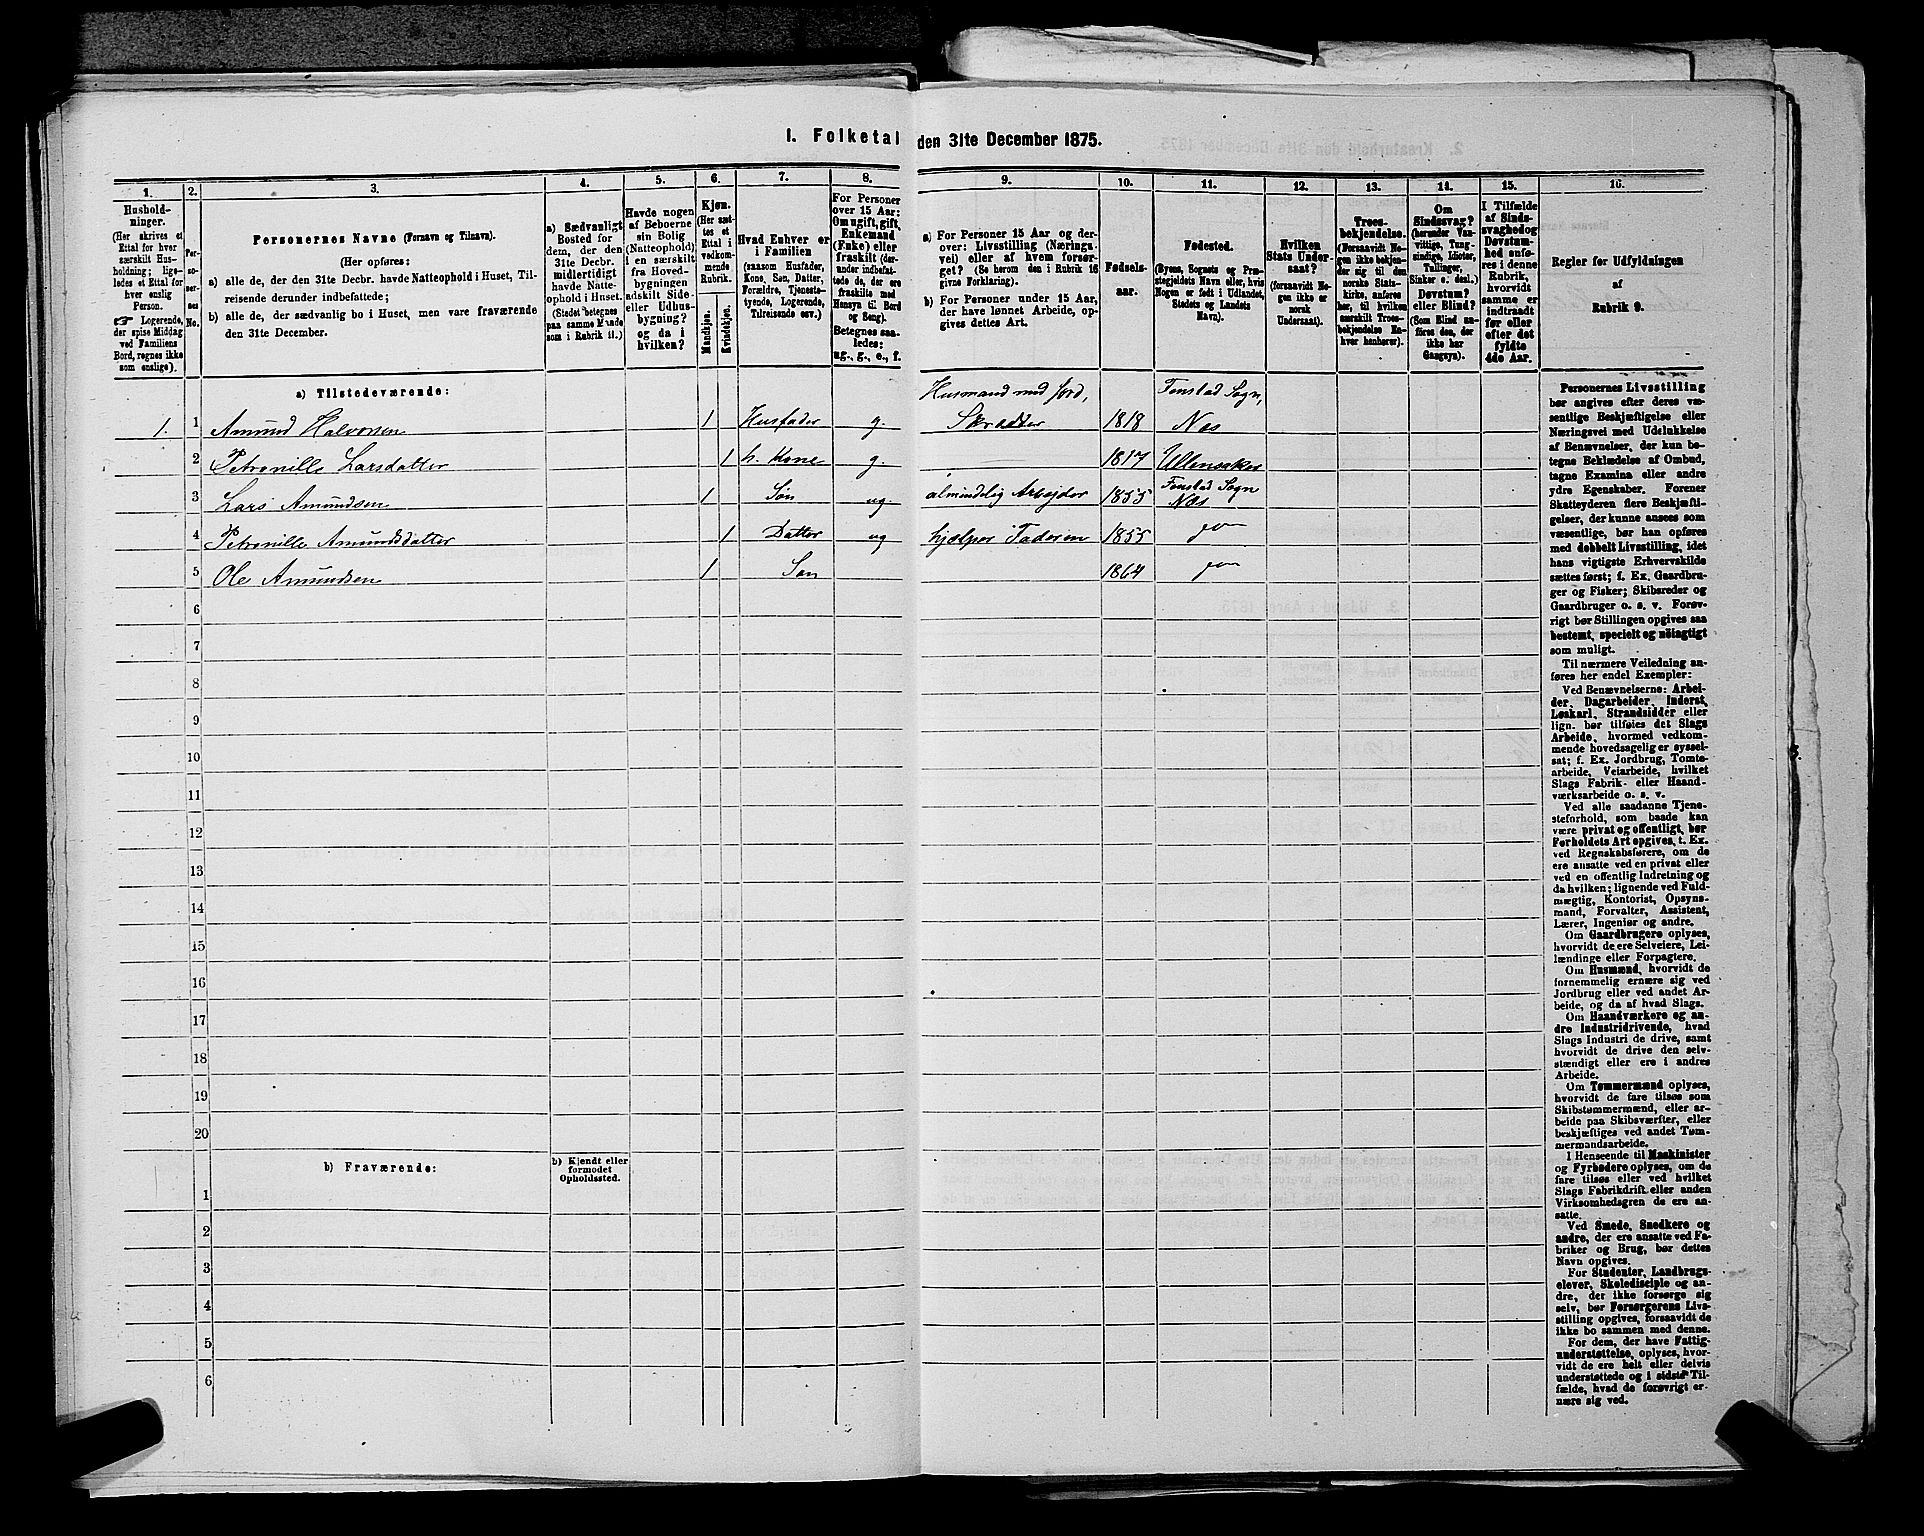 1. Folketal den 31te December 1875.
1.
Hushold-
ninger.
(Her skrives et
Ettal for hver
særskilt Hus-
holdning; lige-
ledes et Ettal for
hver enslig
Person.
Logerende,
der spise Middag
ved Familiens
Bord, regnes ikke
som enslige).
2.
Per-
so-
ner-
nes
No.
3.
Personernes Navne (Fornavn og Tilnavn).
(Her opføres:
a) alle de, der den 31te Decbr. havde Natteophold i Huset, Til-
reisende derunder indbefattede;
b) alle de, der sædvanlig bo i Huset, men vare fraværende
den 31te December.
4.
a) Sædvanligt
Bosted for
dem, der den
31te Decbr.
midlertidigt
havde Natte-
ophold i Huset.
(Stedet betegnes
paa samme Maade
som i Rubrik 11.)
5.
Havde nogen
af Beboerne
sin Bolig
(Natteophold)
i en særskilt
fra Hoved-
bygningen
adskilt Side-
eller Udhus-
bygning?
og da i
hvilken?
6.
Kjøn.
(Her sæt-
tes et
Ettal i
vedkom-
mende
Rubrik.
Mandkjøn.
Kvindekjøn.
7.
Hvad Enhver er
i Familien
(saasom Husfader,
Kone, Søn, Datter,
Forældre, Tjeneste-
tyende, Logerende,
Tilreisende osv.)
8.
For Personer
over 15 Aar:
Om ugift, gift,
Enkemand
(Enke) eller
fraskilt (der-
under indbefat-
tede de, der ere
fraskilte med
Hensyn til Bord
og Seng).
Betegnes saa-
ledes:
ug., g., e., f.
9.
a) For Personer 15 Aar og der-
over: Livsstilling (Nærings-
vei) eller af hvem forsør-
get? (Se herom den i Rubrik 16
givne Forklaring).
b) For Personer under 15 Aar,
der have lønnet Arbeide, op-
gives dettes Art.
10.
Fødsels-
aar.
11.
Fødested.
(Byens, Sognets og Præ-
stegjeldets Navn eller, hvis
Nogen er født i Udlandet,
Stedets og Landets
Navn).
12.
Hvilken
Stats Under-
saat?
(forsaavidt No-
gen ikke er
norsk
Undersaat).
13.
Troes-
bekjendelse.
(Forsaavidt No-
gen ikke bekjen-
der sig til den
norske Stats-
kirke, anføres
her, til hvilken
særskilt Troes-
bekjendelse En-
hver henhører).
14.
Om
Sindssvag?
(herunder Van-
vittige, Tung-
sindige, Idioter,
Tullinger,
Sinker o. desl.)
Døvstum?
eller Blind?
(Som Blind an-
føres den, der
ikke har
Gangsyn).
15.
I Tilfælde
af Sinds-
svaghed og
Døvstum-
hed anfø-
res i denne
Rubrik,
hvorvidt
samme er
indtraadt
før eller
efter det
fyldte
4de Aar.
16.
Regler for Udfyldningen
af
Rubrik 9.
a) Tilstedeværende:
Husmand med Jord, Fenstad Sogn,
1. 1 Amund Halvorsen 1 Husfader g. Skrædder 1818 Nes
2 Petronille Larsdatter 1 h. Kone g. 1817 Ullensaker
3 Lars Amundsen 1 Søn ug. almindelig Arbejder 1855 Fenstad Sogn
Nes
4 Petronille Amundsdatter 1 Datter ug hjælper Faderen 1855
5 Ole Amundsen 1 Søn 1864
6
7
8
9
10
11
12
13
14
15
16
17
18
19
20
b) Fraværende:
b) Kjendt eller
formodet
Opholdssted.
1
2
3
4
5
6
Personernes Livsstilling
bør angives efter deres væ-
sentlige Beskjæftigelse eller
Næringsvei med Udelukkelse
af Benævnelser, der kun be-
tegne Beklædelse af Ombud,
tagne Examina eller andre
ydre Egenskaber. Forener
Skatteyderen flere Beskjæfti-
gelser, der kunne ansees som
væsentlige, bør han opføres
med dobbelt Livsstilling, idet
hans vigtigste Erhvervskilde
sættes først; f. Ex. Gaardbru-
ger og Fisker; Skibsreder og
Gaardbruger o. s. v. Forøv-
rigt bør Stillingen opgives saa
bestemt, specielt og nöiagtigt
som muligt.
Til nærmere Veiledning an-
føres her endel Exempler:
Ved Benævnelserne: Arbei-
der, Dagarbeider, Inderst,
Løskarl, Strandsidder eller
lign. bør tilføies det Slags
Arbeide, hvormed vedkom-
mende hovedsagelig er syssel-
sat; f. Ex. Jordbrug, Tomte-
arbeide, Veiarbeide, hvilket
Slags Fabrik- eller Haand-
værksarbeide o. s. v.
Ved alle saadanne Tjene-
steforhold, som baade kan
være privat og offentligt, bør
Forholdets Art opgives, t. Ex.
ved Regnskabsførere, om de
ere ansatte ved en privat eller
ved en offentlig Indretning og
da hvilken; lignende ved Fuld-
mægtig, Kontorist, Opsyns-
mand, Forvalter, Assistent,
Lærer, Ingeniør og andre.
Om Gaardbrugere oplyses,
hvorvidt de ere Selveiere, Lei-
lændinge eller Forpagtere.
Om Husmænd, hvorvidt de
fornemmelig ernære sig ved
Jordbrug eller ved andet Ar-
beide, og da af hvad Slags.
Om Haandværkere og an-
dre Industridrivende, hvad
Slags Industri de drive, samt
hvorvidt de drive den selv-
stændigt eller ere i andres
Arbeide.
Om Tømmermænd oplyses,
hvorvidt de fare tilsøs som
Skibstømmermænd, eller ar-
beide paa Skibsværfter, eller
beskjæftiges ved andet Tøm-
mermandsarbeide.
I Henseende til Maskinister
og Fyrbødere oplyses, om de
fare tilsøs eller ved hvilket
Slags Fabrikdrift eller anden
Virksomhedsgren de ere an-
satte.
Ved Smede, Snedkere og
andre, der ere ansatte ved Fa-
briker og Brug, bør dettes
Navn opgives.
For Studenter, Landbrugs-
elever, Skoledisciple og an-
dre, der ikke forsørge sig
selv, bør Forsørgerens Livs-
stilling opgives, forsaavidt de
ikke bo sammen med denne.
For dem, der have Fattig-
understøttelse, oplyses, hvor-
vidt de ere helt eller delvis
understøttede og i sidste Til-
fælde, hvad de forøvrigt er-
nære sig ved.